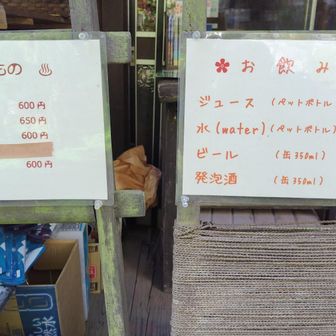 もの ♨
600円
650円
600円
600円
✿ お飲み
ジュース (ペットボトル
水(water) (ペットボトル
ビール (缶350ml)
発泡酒 (缶350ml)